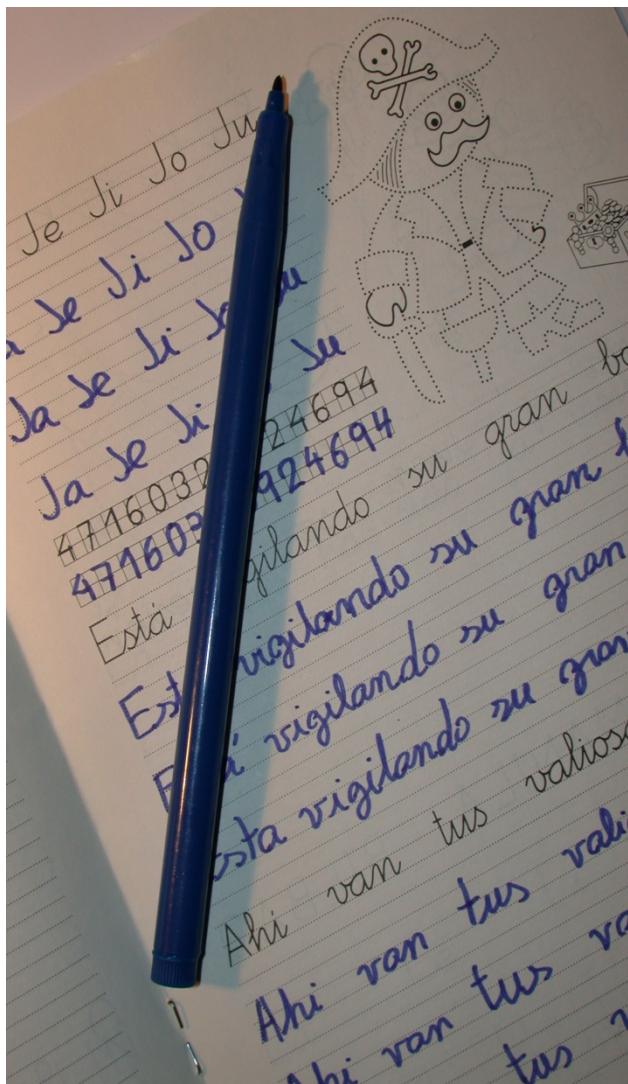 Je Ji Jo Ju
Je Ji Jo
Ja Je Ji Jo Ju
Ja Je Ji Ju
4716032 24694
471603 924694
Está gilando su gran
Est vigilando su gran
E á vigilando su gran
sta vigilando su gran
Ahi van tus valiosa
Ahi van tus vali
Ahi van tus va
tus